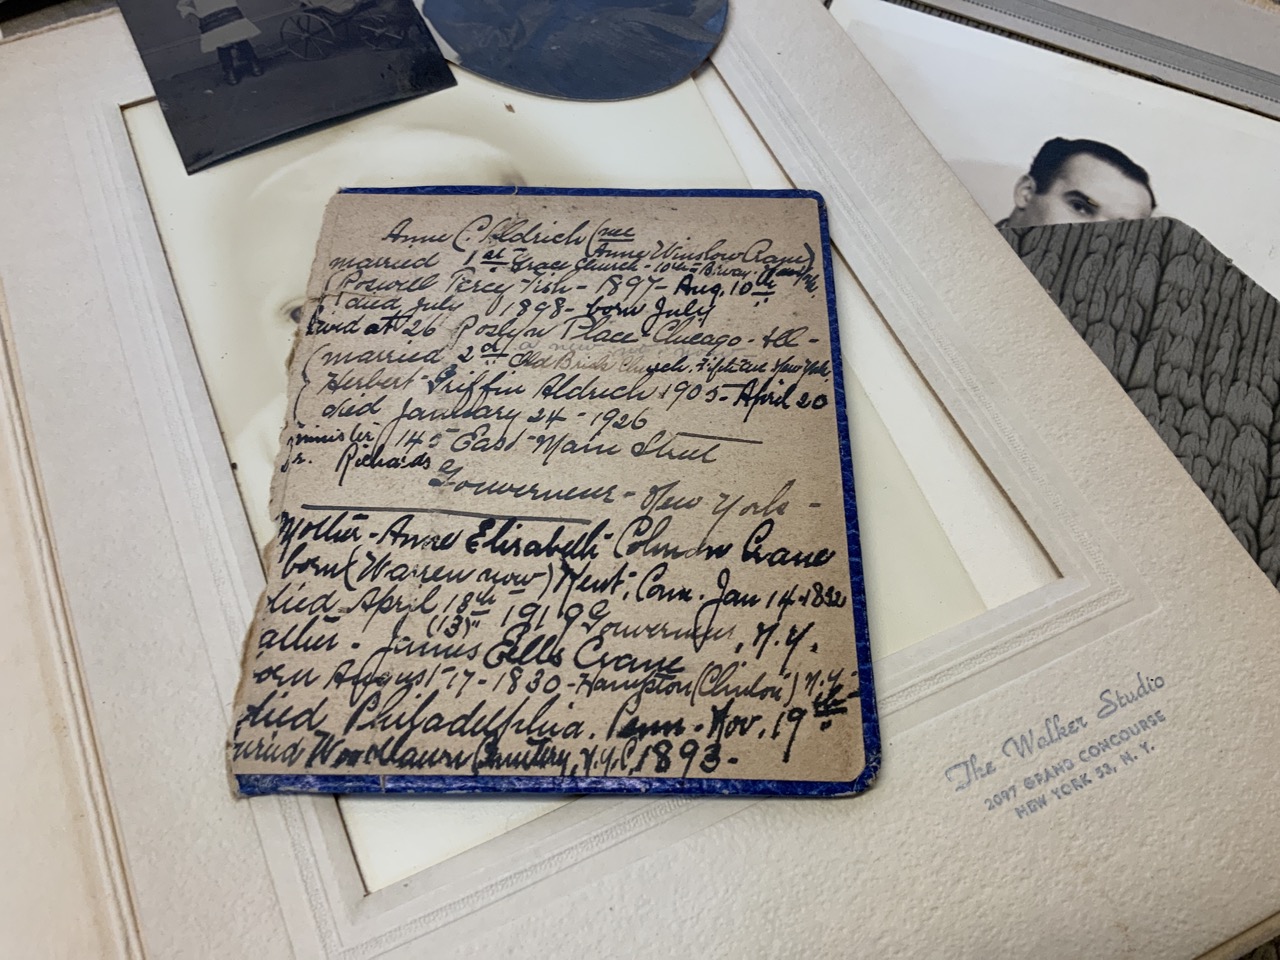 Anne C. Aldrich (nee
Anne Winslow Crane)
married 1st Grace Church - 10th & B'way - New York
(Roswell Percy Tish - 1897 - Aug. 10th
died July 1898 - born July
lived at 26 Roslyn Place - Chicago - Ill -
(married 2d Old Brick Church. Fifth Ave New York
Herbert Griffin Aldrich 1905 - April 20
died January 24 - 1926
minister 145 East Main Street
Dr. Richards
Gouverneur - New York -
Mother - Anne Elizabeth Colman Crane
born (Warren now) Kent, Conn. Jan 14 - 1832
died April 18th 1919 Gouverneur, N.Y.
(13)"
ather - James Eells Crane
orn August 17 - 1830 - Hampton (Clinton) N.Y -
died Philadelphia, Penn - Nov. 19th
uried Woodlawn Cemetery, N.Y.C. 1893 -
The Walker Studio
2097 GRAND CONCOURSE
NEW YORK 53, N. Y.